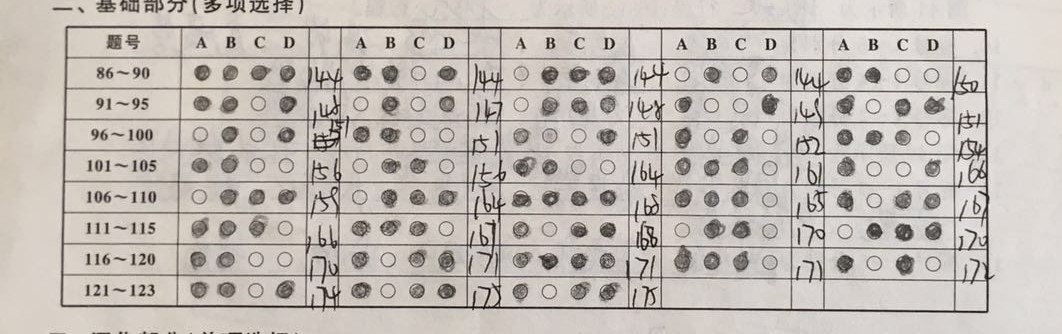 二、基础部分(多项选择)
题号 A B C D A B C D A B C D A B C D A B C D
86～90 144 144 144 144 150
91～95 148 147 148 149 151
96～100 151 151 151 152 154
101～105 156 156 164 161 166
106～110 159 164 168 165 167
111～115 166 167 168 170 170
116～120 170 171 171 171 172
121～123 174 175 175